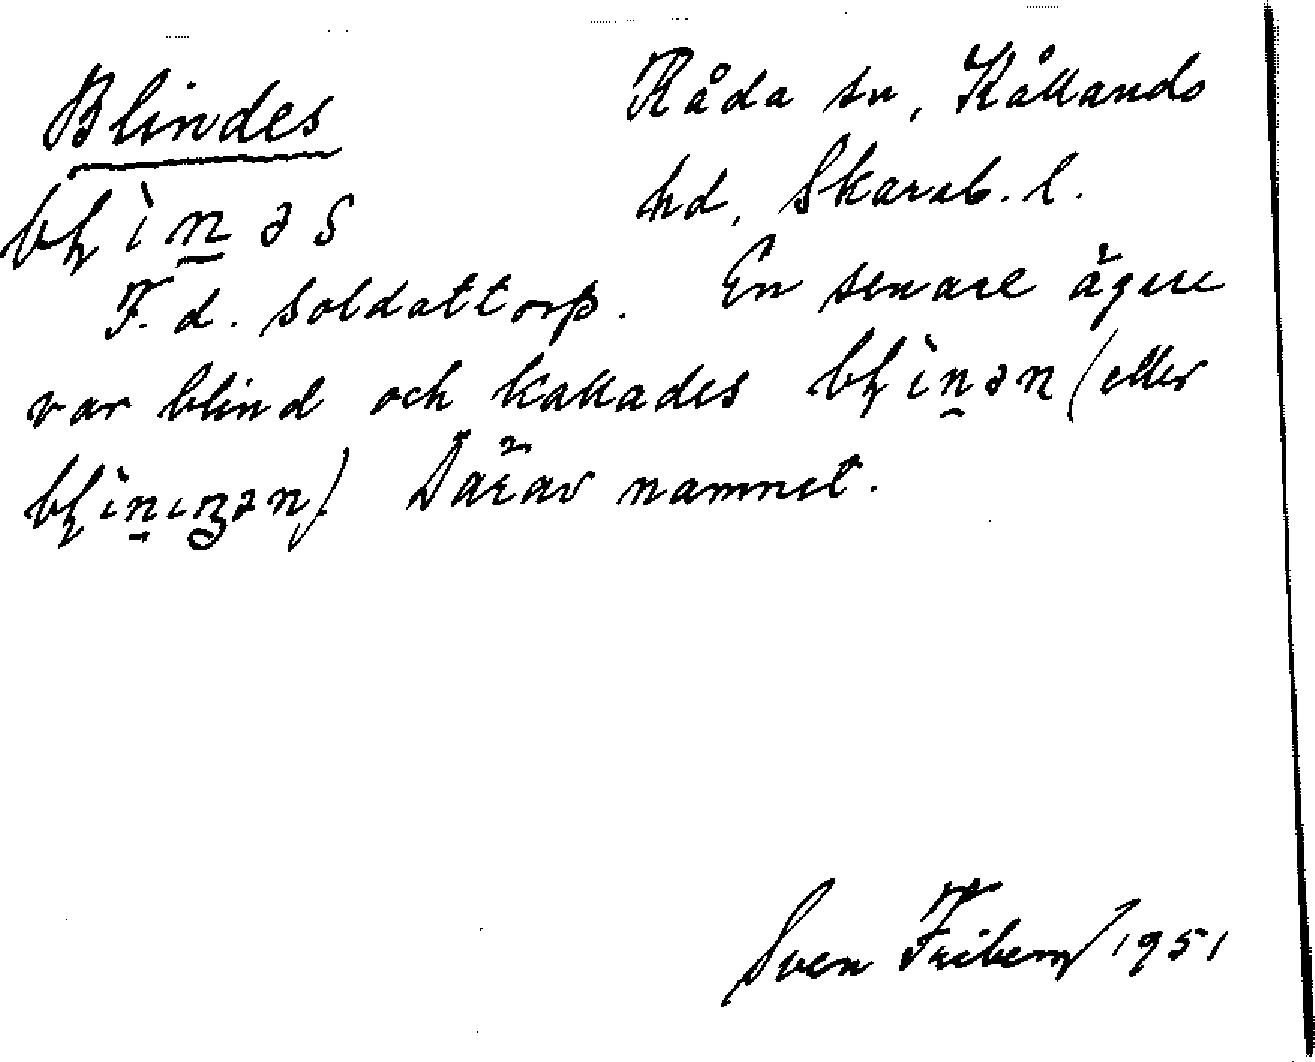 Blindes Råda sn, Kållands
bꞁìn̲əs hd, Skarab. l.
F. d. soldattorp. En senare ägare
var blind och kallades bꞁìn̲ən (eller
bꞁìn̲ıŋən). Därav namnet.
Sven Friberg 1951